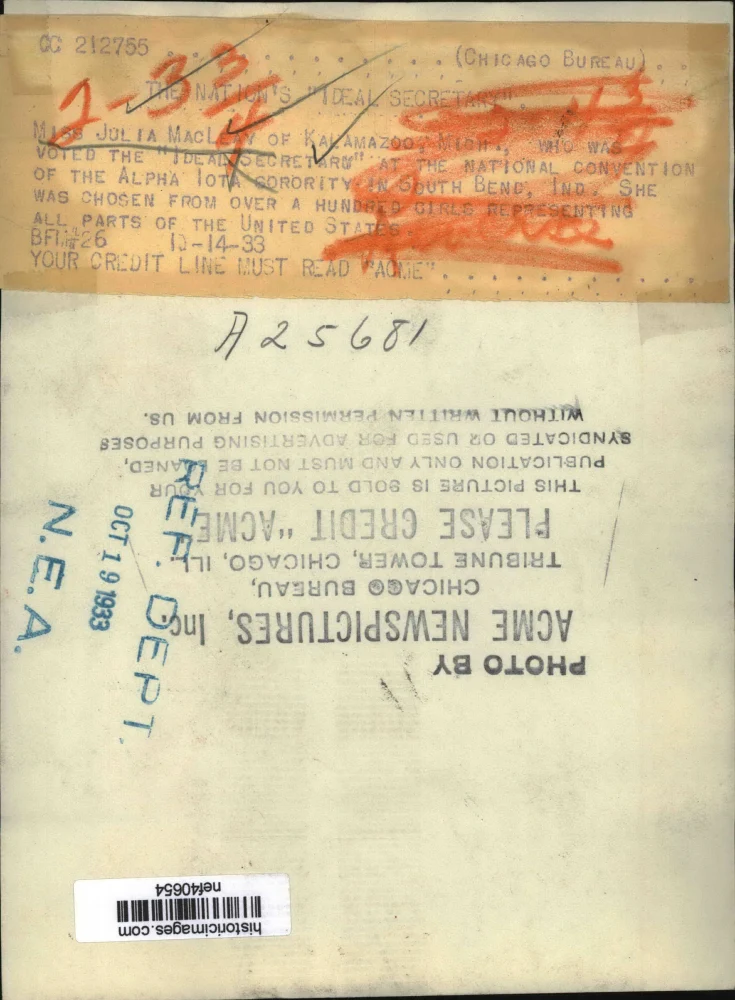 CC 212755 (CHICAGO BUREAU)
THE NATION'S "IDEAL SECRETARY"
MISS JULIA OF KALAMAZOO, MICH., WHO WAS
VOTED THE "IDEAL SECRETARY" AT THE NATIONAL CONVENTION
OF THE ALPHA IOTA SORORITY IN SOUTH BEND, IND. SHE
WAS CHOSEN FROM OVER A HUNDRED GIRLS REPRESENTING
ALL PARTS OF THE UNITED STATES.
10-14-33
YOUR CREDIT LINE MUST READ "ACME"
A25681
PHOTO BY
ACME NEWSPICTURES, Inc.
CHICAGO BUREAU,
TRIBUNE TOWER, CHICAGO, ILL.
PLEASE CREDIT "ACME"
THIS PICTURE IS SOLD TO YOU FOR YOUR
PUBLICATION ONLY AND MUST NOT BE LOANED,
SYNDICATED OR USED FOR ADVERTISING PURPOSES
WITHOUT WRITTEN PERMISSION FROM US.
REF. DEPT.
OCT 19 1933
N.E.A.
historicimages.com
nef40654